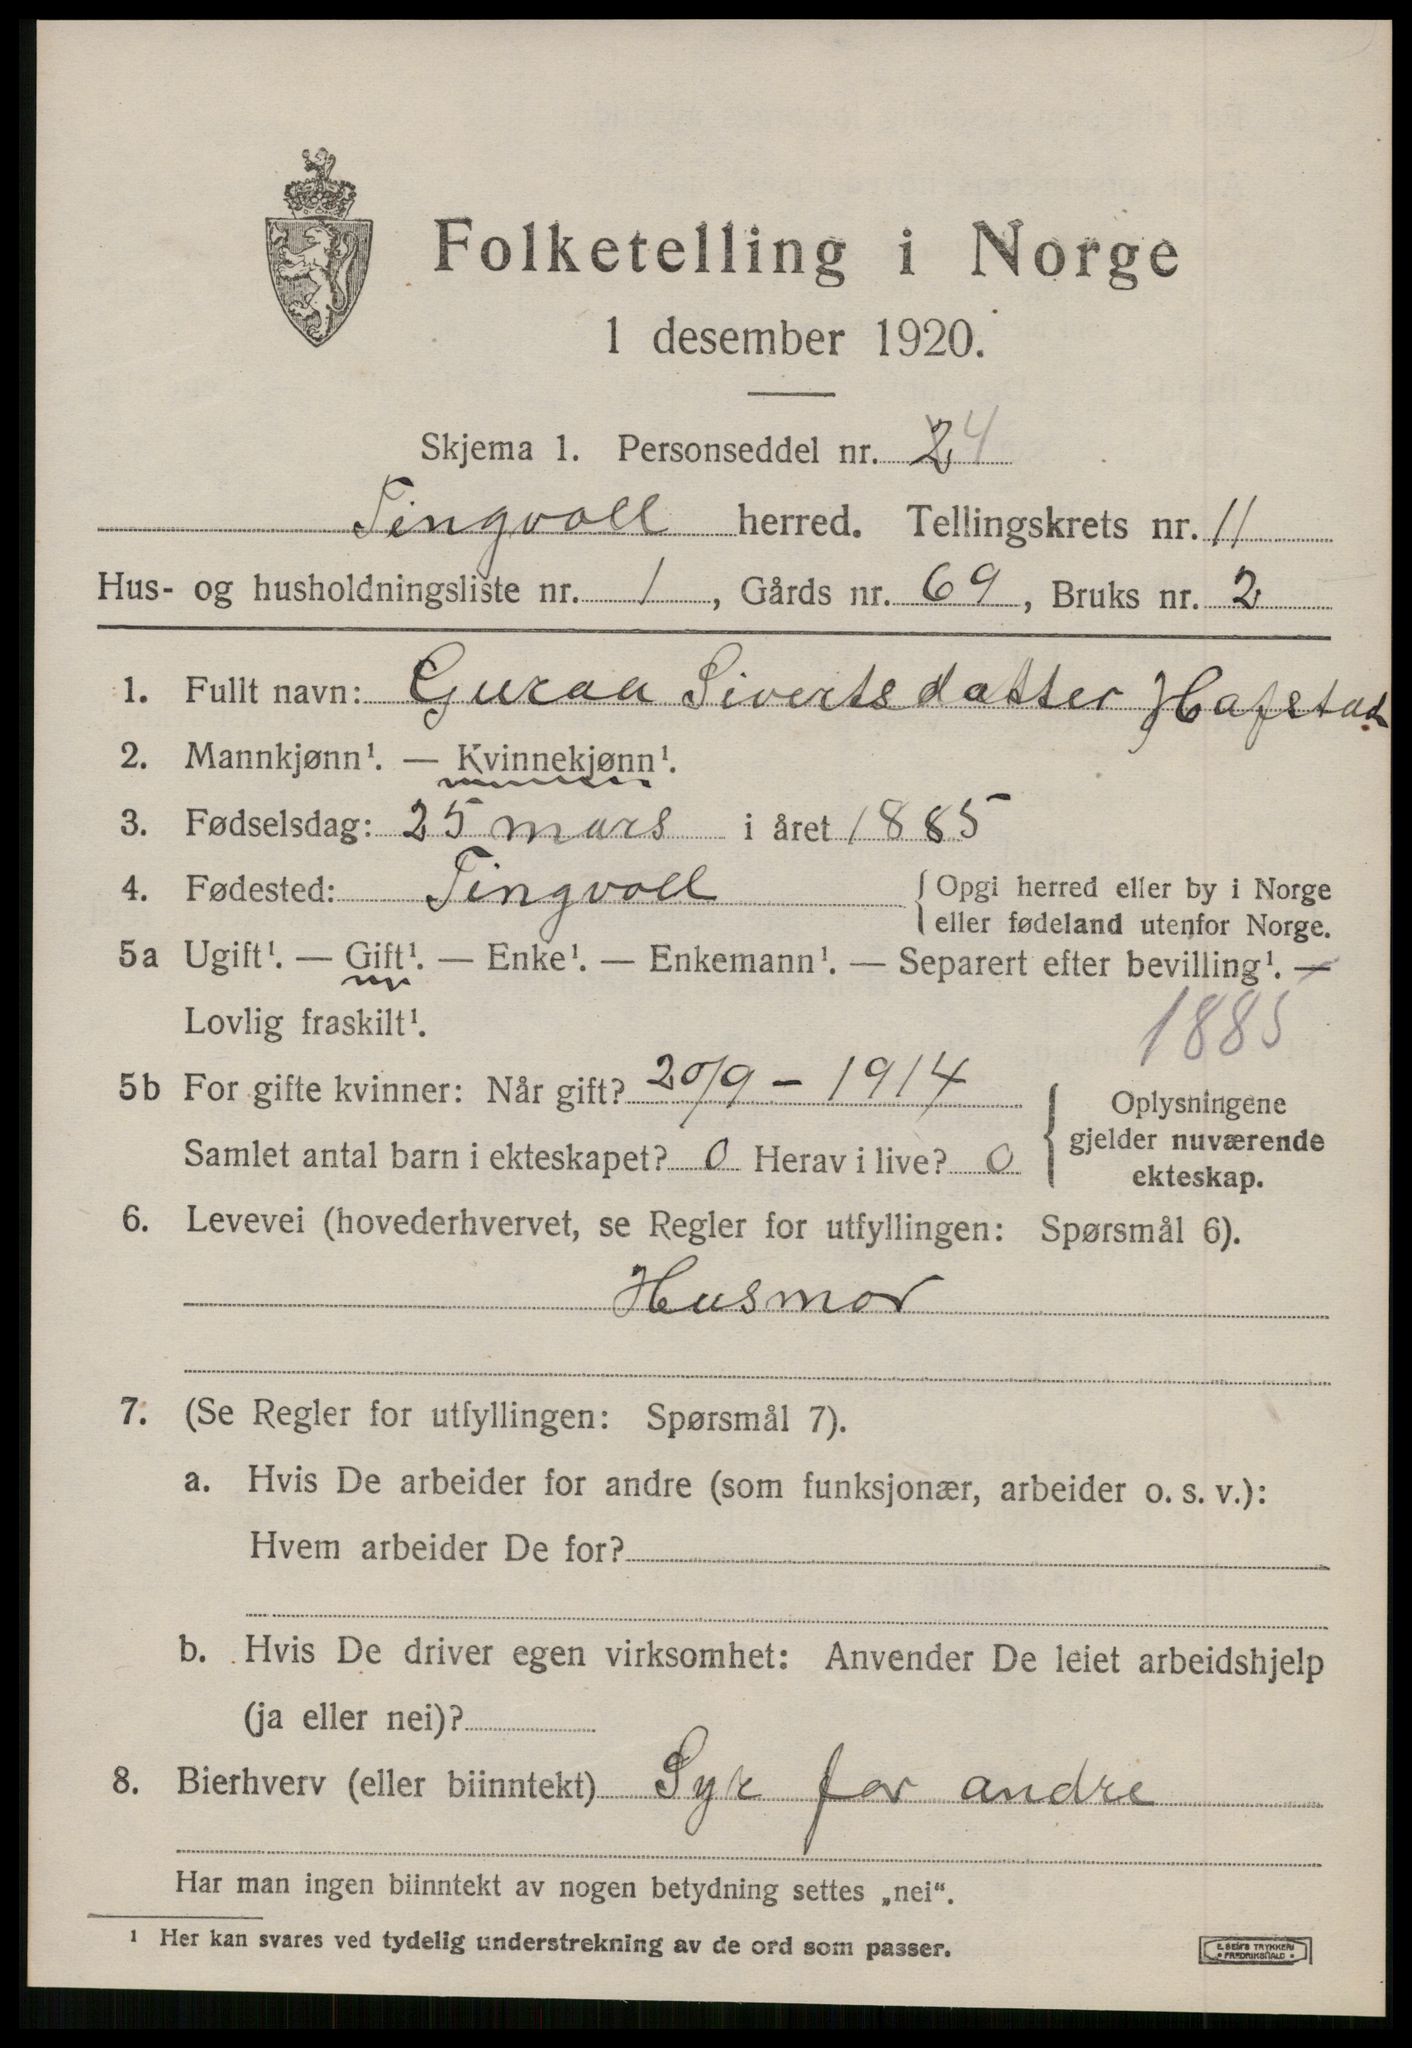 Folketelling i Norge
1 desember 1920.
Skjema 1. Personseddel nr. 24
Tingvoll herred. Tellingskrets nr. 11
Hus- og husholdningsliste nr. 1, Gårds nr. 69, Bruks nr. 2
1. Fullt navn: Guraa Sivertsdatter Hafstad
2. Mannkjønn¹. — Kvinnekjønn¹.
3. Fødselsdag: 25 mars i året 1885
4. Fødested: Tingvoll { Opgi herred eller by i Norge
eller fødeland utenfor Norge.
5a Ugift¹. — Gift¹. — Enke¹. — Enkemann¹. — Separert efter bevilling¹. —
Lovlig fraskilt¹. 1885
5b For gifte kvinner: Når gift? 20/9 – 1914
Samlet antal barn i ekteskapet? 0 Herav i live? 0
Oplysningene
gjelder nuværende
ekteskap.
6. Levevei (hovederhvervet, se Regler for utfyllingen: Spørsmål 6).
Husmor
7. (Se Regler for utfyllingen: Spørsmål 7).
a. Hvis De arbeider for andre (som funksjonær, arbeider o. s. v.):
Hvem arbeider De for?
b. Hvis De driver egen virksomhet: Anvender De leiet arbeidshjelp
(ja eller nei)?
8. Bierhverv (eller biinntekt) Syr for andre
Har man ingen biinntekt av nogen betydning settes „nei“.
¹ Her kan svares ved tydelig understrekning av de ord som passer.
E. SEM'S TRYKKERI
• FREDRIKSHALD •